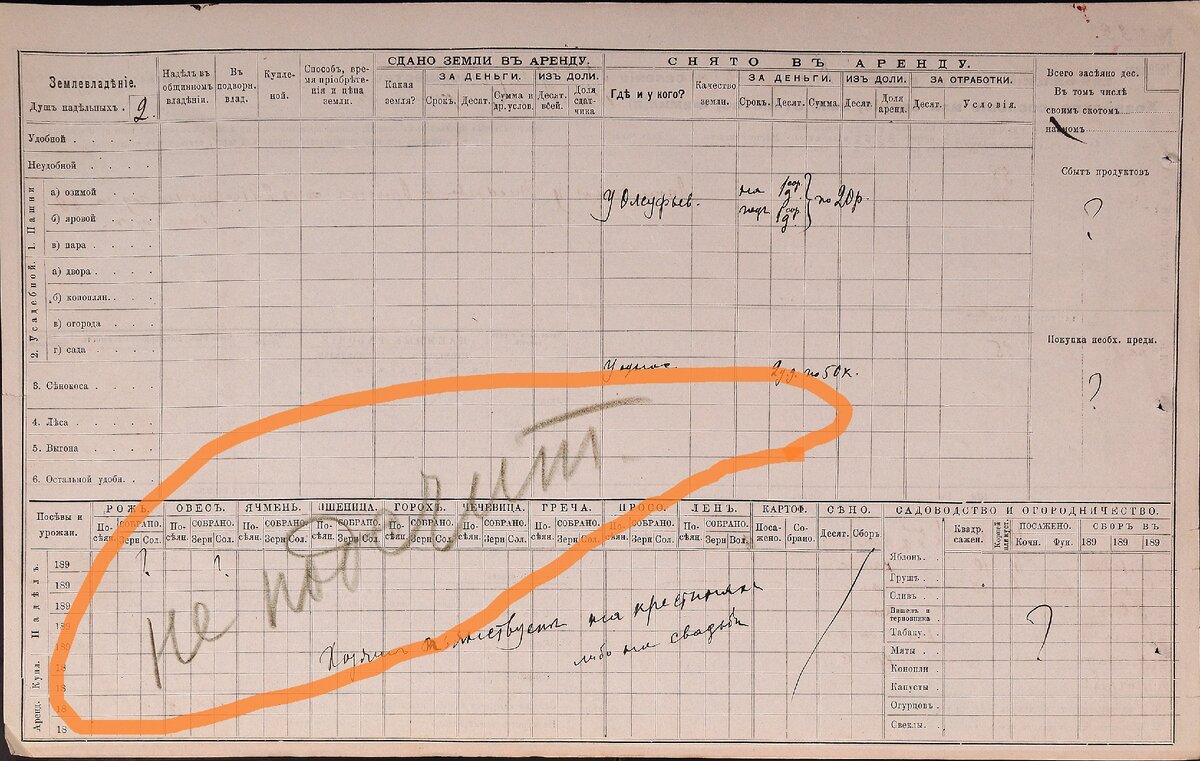 Землевладѣніе.
Душъ надѣльныхъ . 2.
Надѣлъ въ общинномъ владѣніи.
Въ подворн. влад.
Купленой.
Способъ, время пріобрѣтенія и цѣна земли.
СДАНО ЗЕМЛИ ВЪ АРЕНДУ.
Какая земля?
ЗА ДЕНЬГИ.
Срокъ. Десят. Сумма и др. услов.
ИЗЪ ДОЛИ.
Десят. всей. Доля сдатчика
СНЯТО ВЪ АРЕНДУ.
Гдѣ и у кого?
Качество земли.
ЗА ДЕНЬГИ.
Срокъ. Десят. Сумма.
ИЗЪ ДОЛИ.
Десят. Доля аренд.
ЗА ОТРАБОТКИ.
Десят. Условія.
Всего засѣяно дес.
Въ томъ числѣ
своимъ скотомъ
наймомъ
Удобной . . . .
Неудобной . . . .
1. Пашни
а) озимой . . . .
б) яровой . . . .
в) пара . . . .
У Олсуфьев.
по 20 р.
Сбытъ продуктовъ
?
2. Усадебной.
а) двора . . . .
б) коноплян. . . .
в) огорода . . .
г) сада . . . .
Покупка необх. предм.
?
3. Сѣнокоса . . . .
по 50 к.
4. Лѣса . . . .
5. Выгона . . . .
6. Остальной удобн. .
не подлит.
Посѣвы и урожаи.
РОЖЬ. ОВЕСЪ. ЯЧМЕНЬ. ПШЕНИЦА. ГОРОХЪ. ЧЕЧЕВИЦА. ГРЕЧА. ПРОСО. ЛЕНЪ. КАРТОФ. СѢНО.
Посѣян. СОБРАНО. Зерн Сол.
Посѣян. СОБРАНО. Зерн Сол.
Посѣян. СОБРАНО. Зерн Сол.
Посѣян. СОБРАНО. Зерн Сол.
Посѣян. СОБРАНО. Зерн Сол.
Посѣян. СОБРАНО. Зерн Сол.
Посѣян. СОБРАНО. Зерн Сол.
Посѣян. СОБРАНО. Зерн Сол.
Посѣян. СОБРАНО. Зерн Вол.
Посажено. Собрано.
Десят. Сборъ
САДОВОДСТВО И ОГОРОДНИЧЕСТВО.
Квадр. сажен.
ПОСАЖЕНО.
Кочн. Фун.
СБОРЪ ВЪ
189 189 189
Надѣлъ.
189
189
189
189
Купл.
18
18
Аренд.
18
18
? ?
Хозяин пьянствуетъ на крестинахъ
либо на свадьбѣ
Яблонь. .
Грушъ . .
Сливъ . .
Вишенъ и терновника .
Табаку. .
Мяты . .
Конопли .
Капусты .
Огурцовъ .
Свеклы. .
?